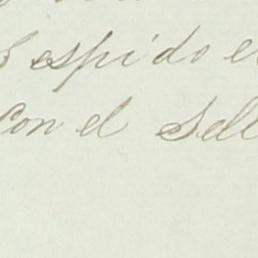 espido e
Con el Sell